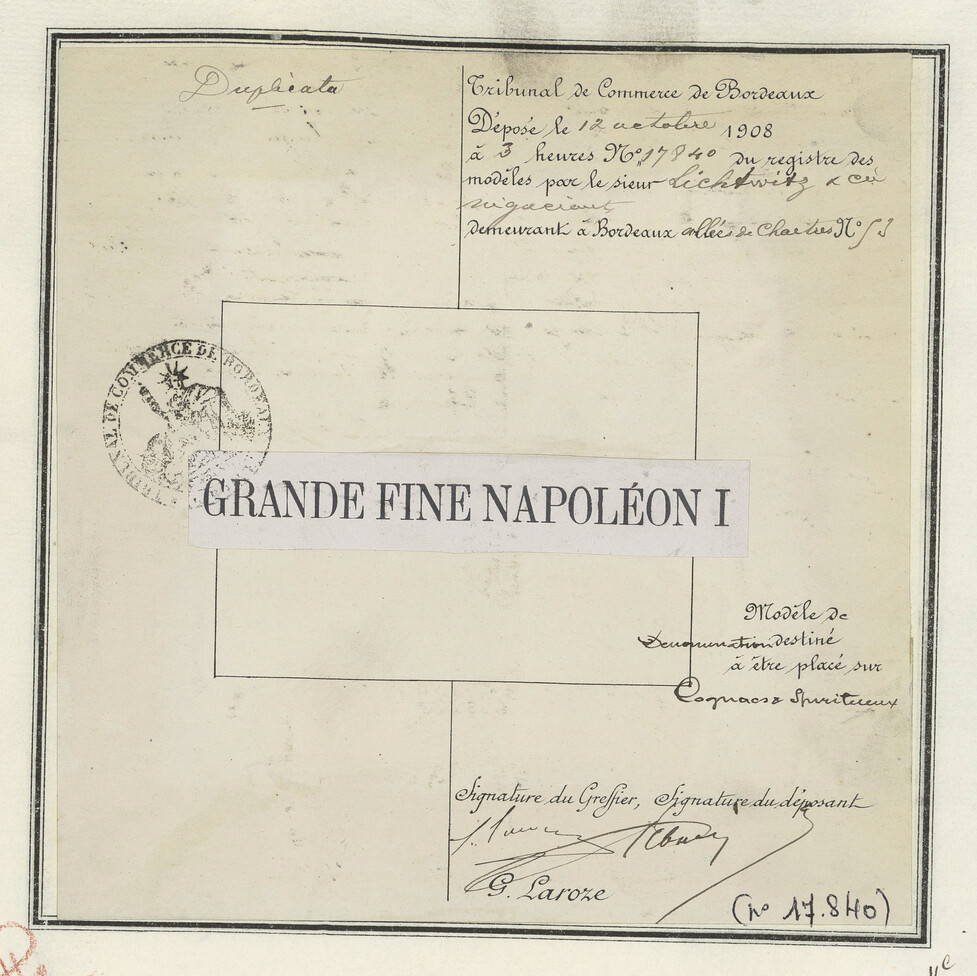 Duplicata
Tribunal de Commerce de Bordeaux
Déposé le 12 octobre 1908
à 3 heures Nº 17840 du registre des
modèles par le sieur Lichtwitz & Cie
négociant
demeurant à Bordeaux allées de Chartres Nº 53
TRIBUNAL DE COMMERCE DE BORDEAUX
GRANDE FINE NAPOLÉON I
Modèle de
Denomination destiné
à être placé sur
Cognacs & Spiritueux
Signature du Greffier, Signature du déposant
G. Laroze
(nº 17.840)